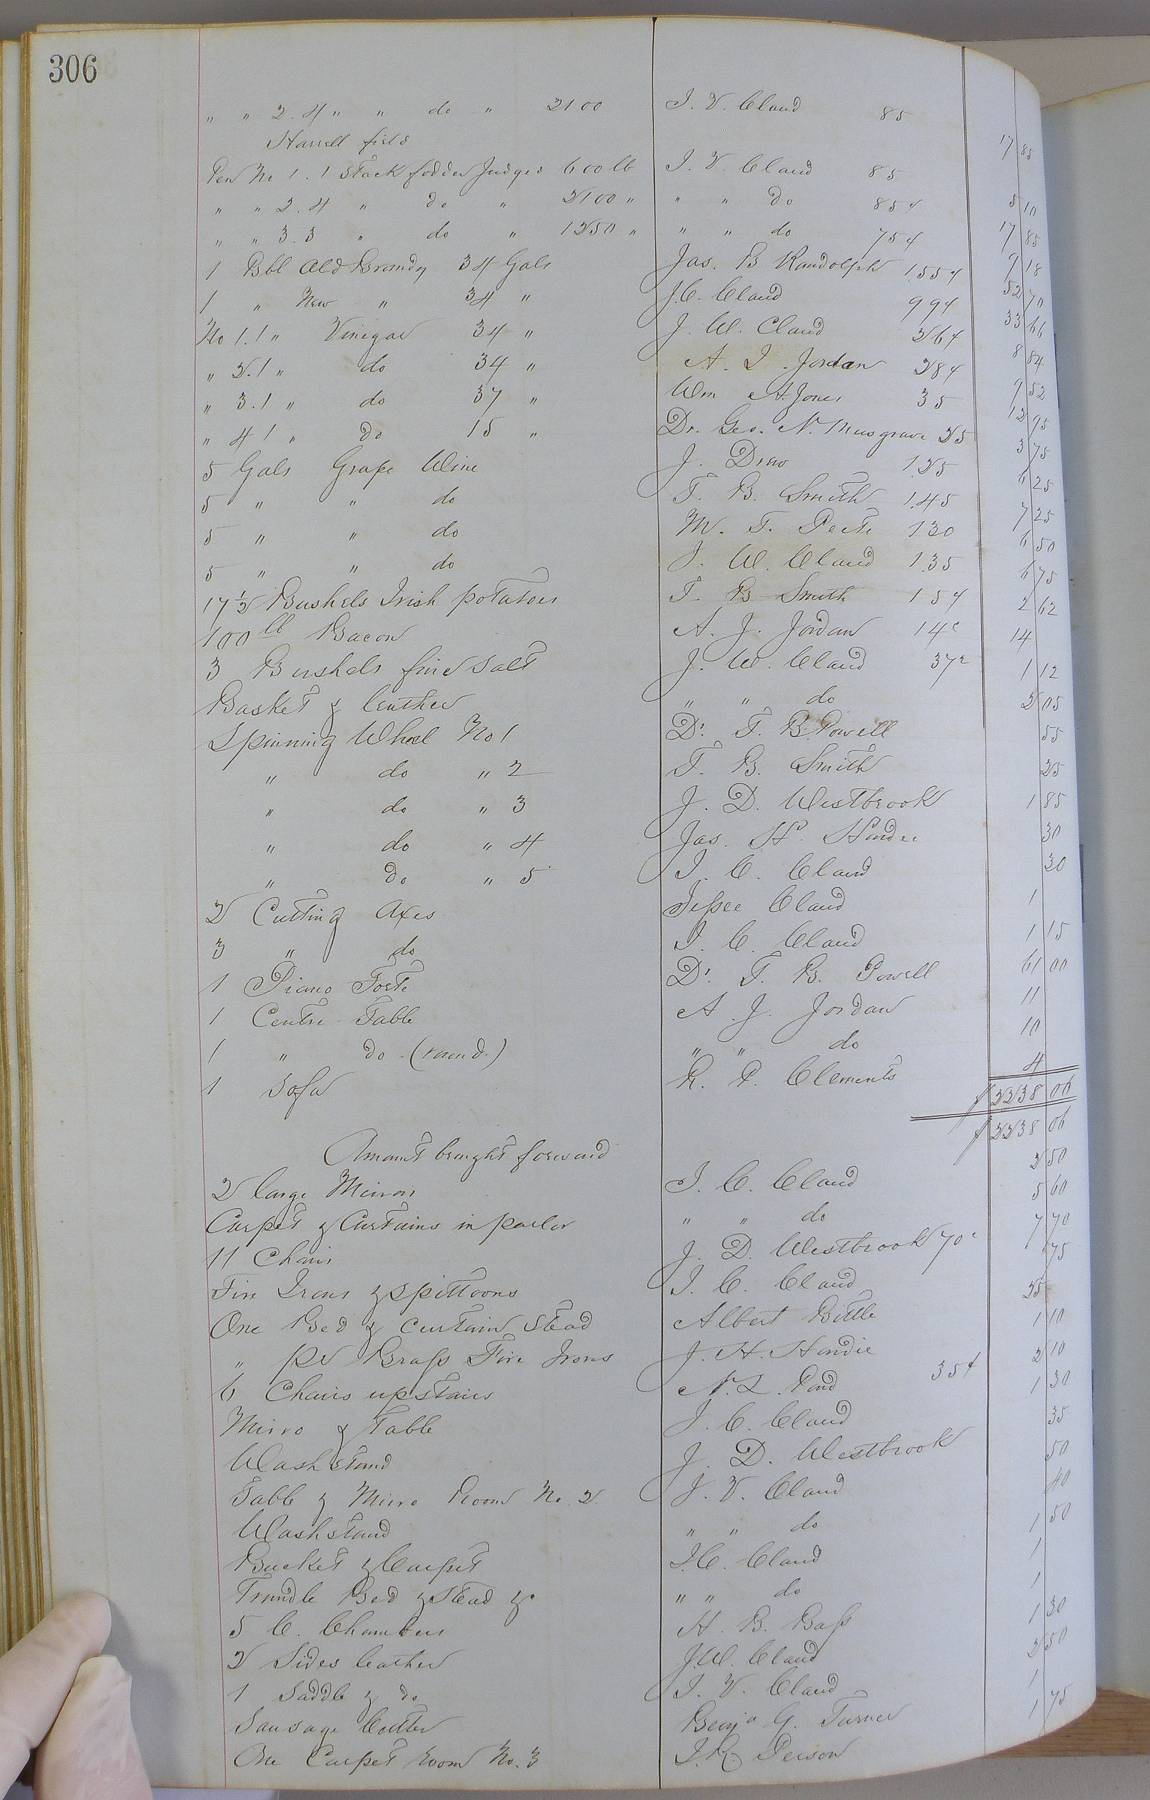 306
" " 2. 4 " " do " 2100 J. V. Claud 85 17 85
Harrell field
Pen No 1. 1 Stack fodder Judged 600 lb J. V. Claud 85 5 10
" " 2. 4 " do " 2100 " " " do 85¢ 17 85
" " 3. 3 " do " 1250 " " " do 75¢ 9 18
1 Bbl Old Brandy 34 Gals Jas. B Randolph 155¢ 52 70
1 " New " 34 " J. C. Claud 99¢ 33 66
No 1. 1 " Vinegar 34 " J. W. Claud 26¢ 8 84
" 2. 1 " do 34 " A. J. Jordan 28¢ 9 52
" 3. 1 " do 37 " Wm A Jones 35 12 95
" 4 1 " do 15 " Dr. Geo. N. Musgrave 25 3 75
5 Gals Grape Wine J. Drew 1.25 6 25
5 " " do T. B. Smith 1.45 7 25
5 " " do M. T. 130 6 50
5 " " do J. W. Claud 1.35 6 75
17 1/2 Bushels Irish potatoes T. B Smith 15¢ 2 62
100 lb Bacon A. J. Jordan 14c 14
3 Bushels fine Salt J. W. Claud 37c 1 12
Basket & leather " " do 2 05
Spinning Wheel No 1 Dr. T. B. Powell 55
" do " 2 T. B. Smith 25
" do " 3 J. D. Westbrook 1 85
" do " 4 Jas. H. 30
" do " 5 J. C. Claud 30
2 Cutting Axes Jessee Claud 1
3 " do J. C. Claud 1 15
1 Piano Forte Dr. T. B. Powell 61 00
1 Centre Table A. J. Jordan 11
1 " do. (round.) " " do 10
1 Sofa R. P. Clements 4
$ 2238 06
Amount brought forward $ 2238 06
2 large Mirrors J. C. Claud 2 50
Carpet & Curtains in parlor " " do 5 60
11 Chairs J. D. Westbrook 70c 7 70
Fire Irons & spittoons J. C. Claud 75
One Bed & Curtain Stead Albert Bittle 25
" pr Brass Fire Irons J. H. 1 10
6 Chairs upstairs N. L. Pond 35¢ 2 10
Mirro & Table J. C. Claud 1 30
Wash stand J. D. Westbrook 35
Table & Mirro Room No. 2 J. V. Claud 50
Washstand " " do 40
Bucket & Carpet J. C. Claud 1 50
Trundle Bed & Stead &c " " do 1
5 C. Chambers H. B. Bass 1
2 Sides leather J. W. Claud 1 30
1 Saddle & do J. V. Claud 2 50
Sausage Cutter Benja G. Turner 1
One Carpet Room No. 3 Person 1 75